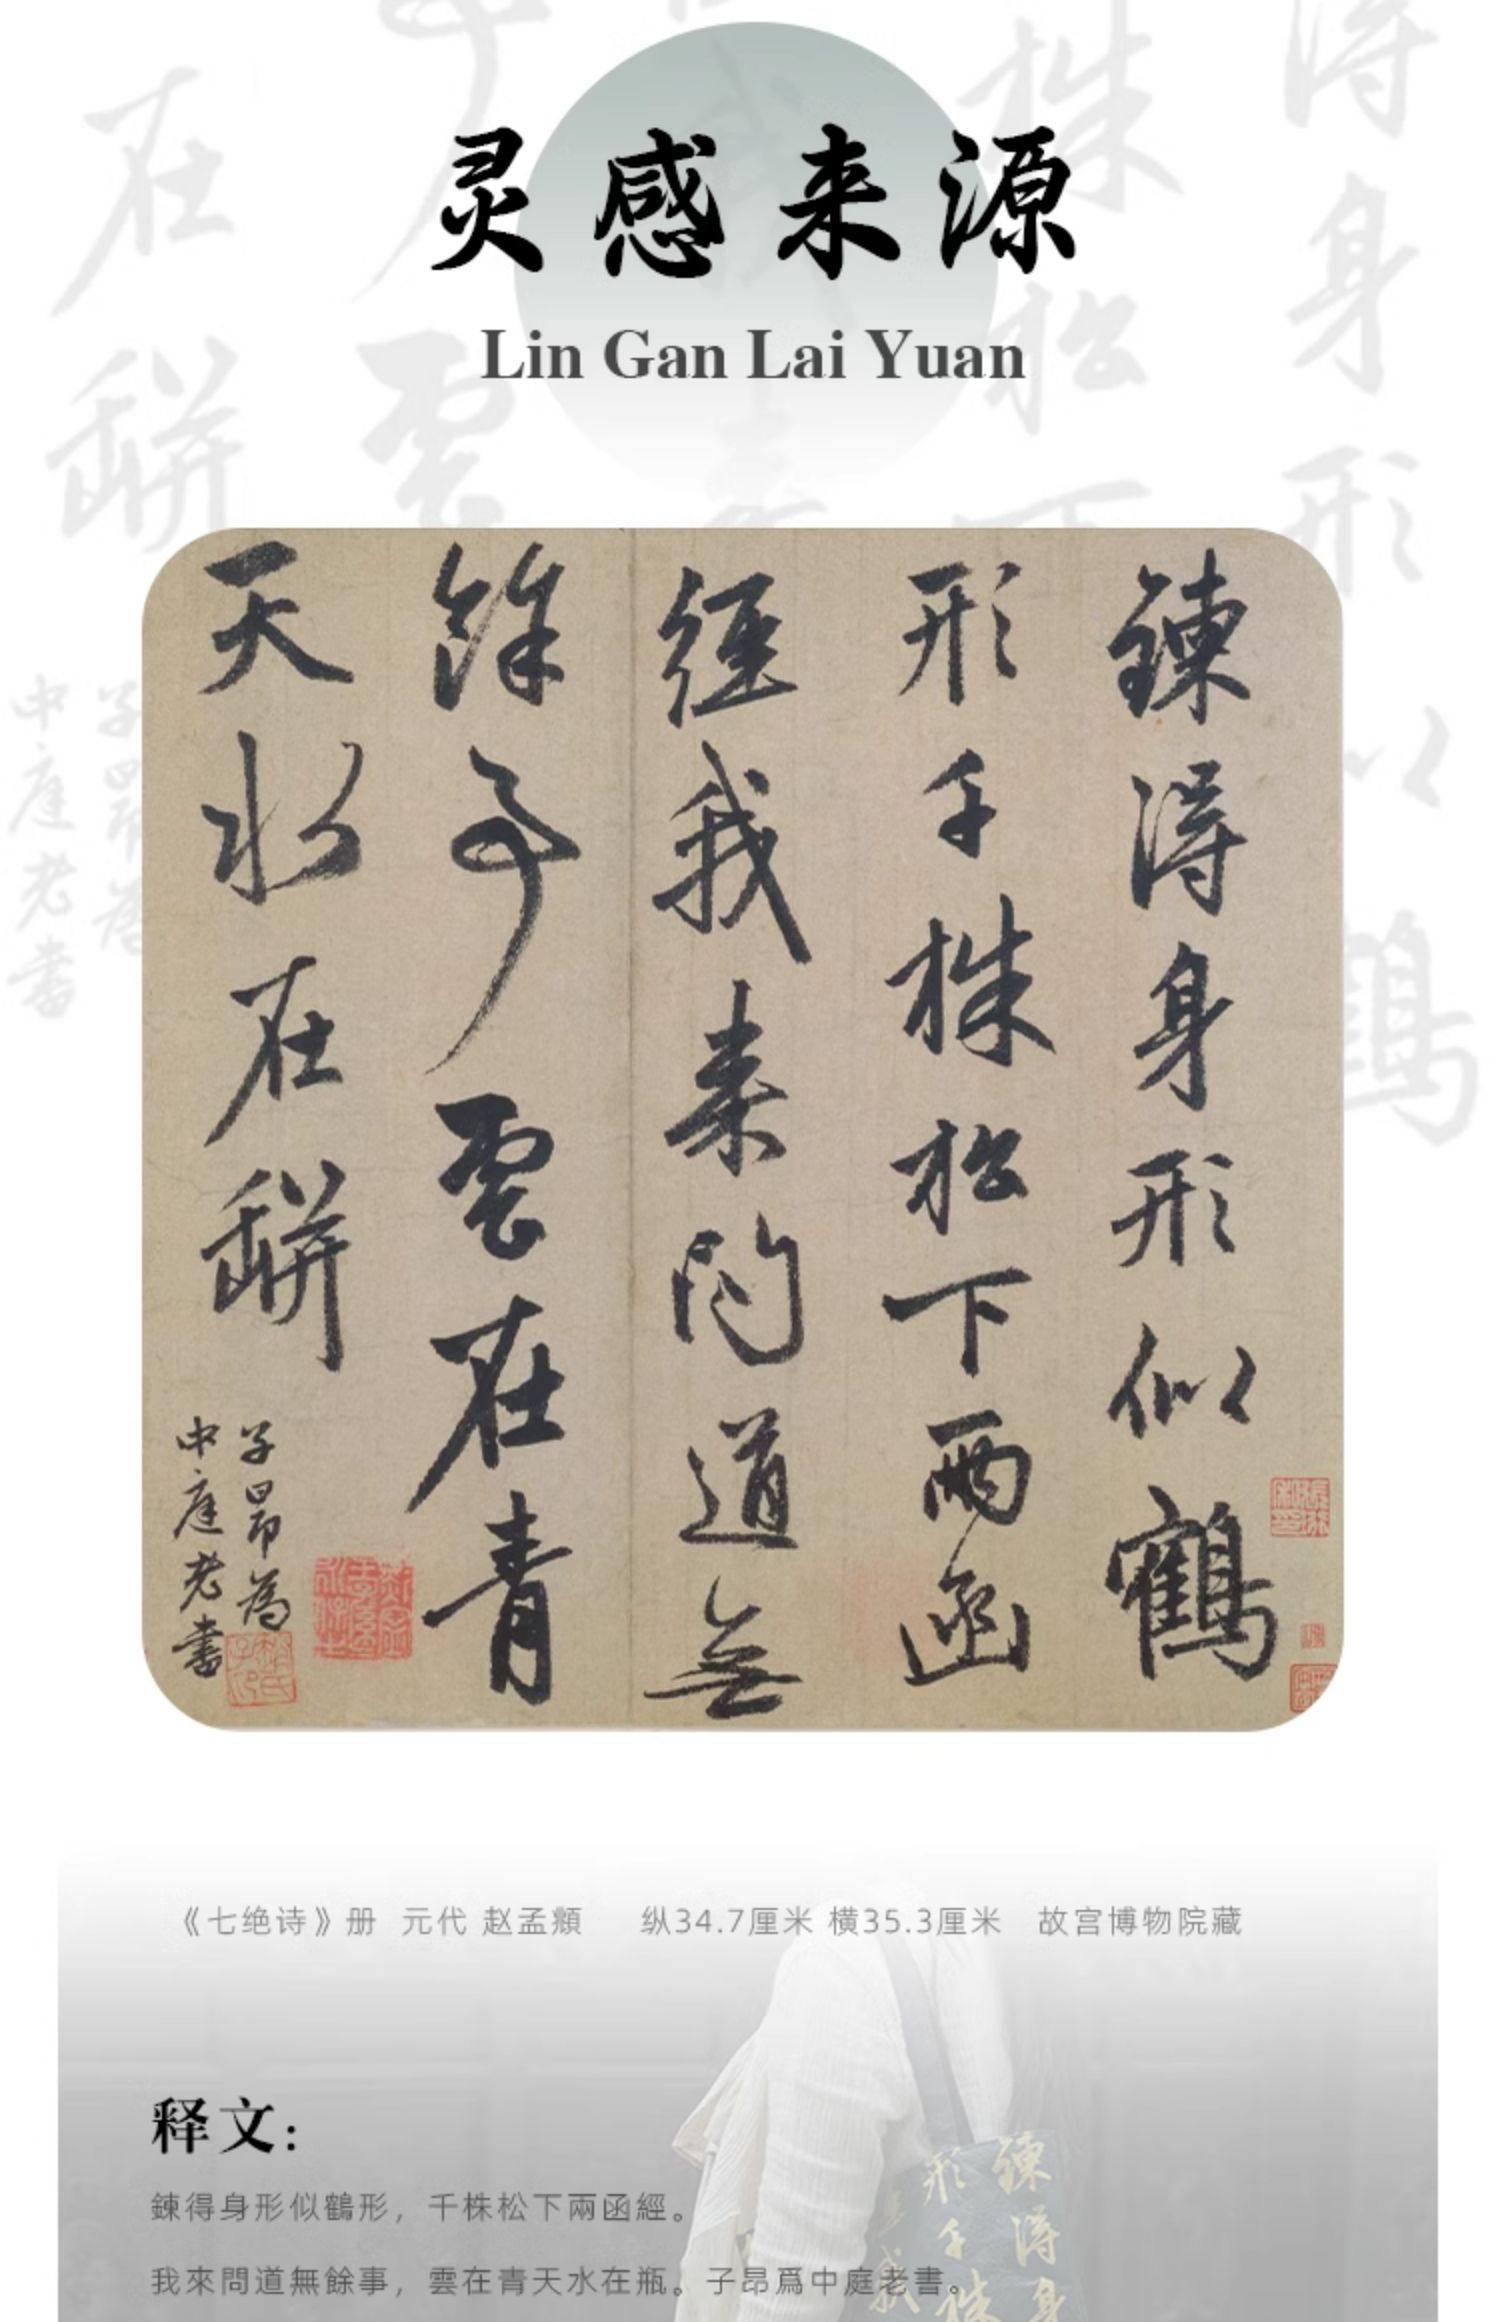 灵感来源
Lin Gan Lai Yuan
鍊得身形似鶴
形千株松下兩函
經我来问道無
餘事雲在青
天水在缾
子昂為
中庭老書
《七绝诗》册 元代 赵孟頫 纵34.7厘米 横35.3厘米 故宫博物院藏
释文:
鍊得身形似鶴形，千株松下兩函經。
我來問道無餘事，雲在青天水在瓶。子昂爲中庭老書。